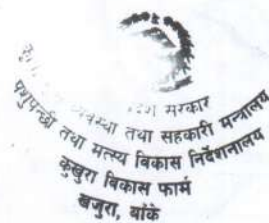 सरकार
व्यवस्था तथा सहकारी मन्त्रालय
पशुपन्छी तथा मत्स्य विकास निर्देशनालय
कुखुरा विकास फार्म
खजुरा, बांके